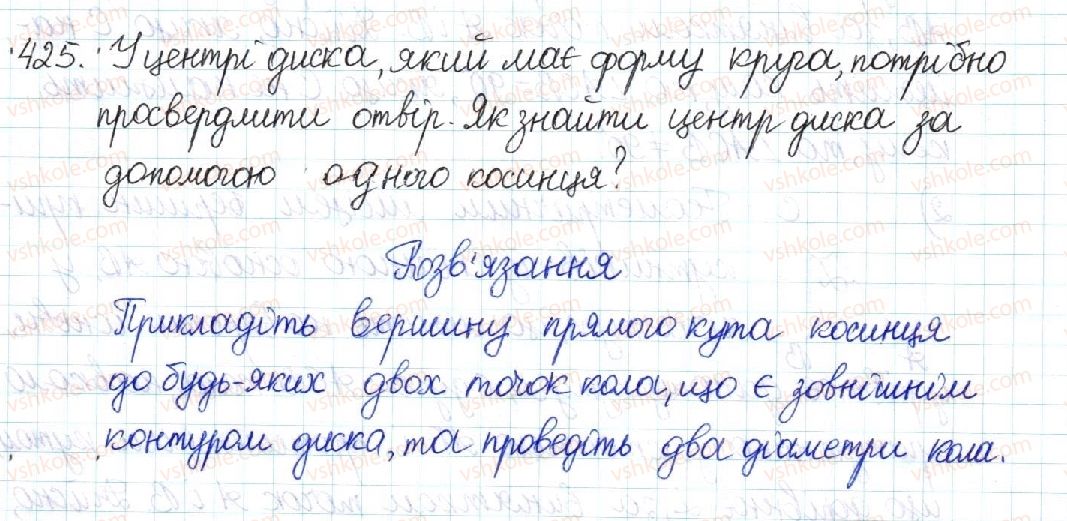 425. У центрі диска, який має форму круга, потрібно
просвердлити отвір. Як знайти центр диска за
допомогою одного косинця?
Розв'язання
Прикладіть вершину прямого кута косинця
до будь-яких двох точок кола, що є зовнішнім
контуром диска, та проведіть два діаметри кола.